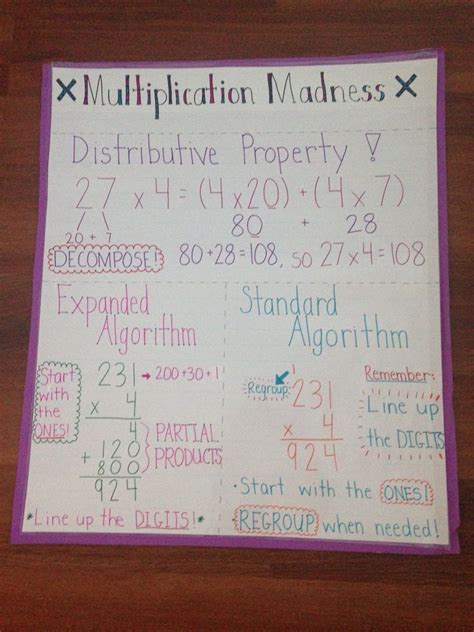 × Multiplication Madness ×
Distributive Property!
27 × 4 = (4 × 20) + (4 × 7)
20 + 7
80 + 28
DECOMPOSE!
80 + 28 = 108, so 27 × 4 = 108
Expanded
Algorithm
Start
with
the
ONES!
231 → 200 + 30 + 1
× 4
4
120
+ 800
924
PARTIAL
PRODUCTS
*Line up the DIGITS!*
Standard
Algorithm
Regroup:
1
231
× 4
924
Remember:
Line up
the DIGITS
• Start with the ONES!
• REGROUP when needed!